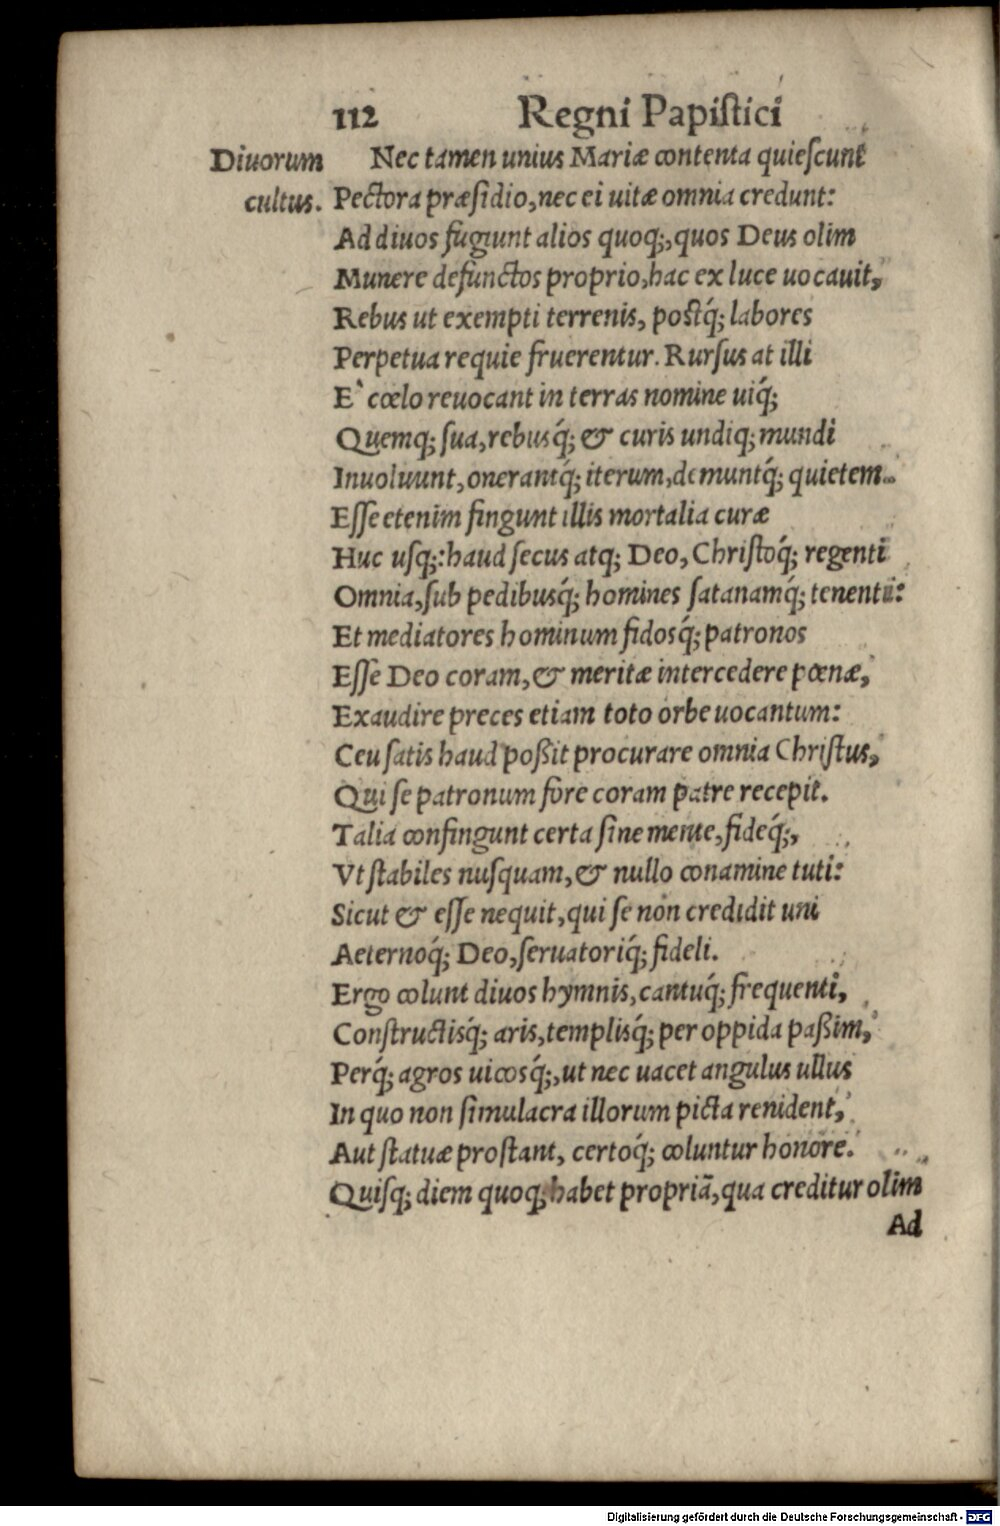 112 Regni Papiſtici
Diuorum
cultus.
Nec tamen unius Mariæ contenta quieſcunt
Pectora præſidio, nec ei uitæ omnia credunt:
Ad diuos fugiunt alios quoq;, quos Deus olim
Munere defunctos proprio, hac ex luce uocauit,
Rebus ut exempti terrenis, poſtq́; labores
Perpetua requie fruerentur. Rurſus at illi
E` cœlo reuocant in terras nomine uiq́;
Quemq; ſua, rebusq́; & curis undiq; mundi
Inuoluunt, onerantq́; iterum, demuntq́; quietem.
Eſſe etenim fingunt illis mortalia curæ
Huc uſq;: haud ſecus atq; Deo, Chriſtoq́; regenti
Omnia, ſub pedibusq́; homines ſatanamq́; tenenti:
Et mediatores hominum fidosq́; patronos
Eſſe Deo coram, & meritæ intercedere pœnæ,
Exaudire preces etiam toto orbe uocantum:
Ceu ſatis haud poßit procurare omnia Chriſtus,
Qui ſe patronum fore coram patre recepit.
Talia confingunt certa ſine mente, fideq́;,
Vt ſtabiles nuſquam, & nullo conamine tuti:
Sicut & eſſe nequit, qui ſe non credidit uni
Aeternoq́; Deo, ſeruatoriq́; fideli.
Ergo colunt diuos hymnis, cantuq́; frequenti,
Conſtructisq́; aris, templisq́; per oppida paßim,
Perq́; agros uicosq́;, ut nec uacet angulus ullus
In quo non ſimulacra illorum picta renident,
Aut ſtatuæ proſtant, certoq́; coluntur honore.
Quiſq; diem quoq; habet propriã, qua creditur olim
Ad
Digitalisierung gefördert durch die Deutsche Forschungsgemeinschaft - DFG